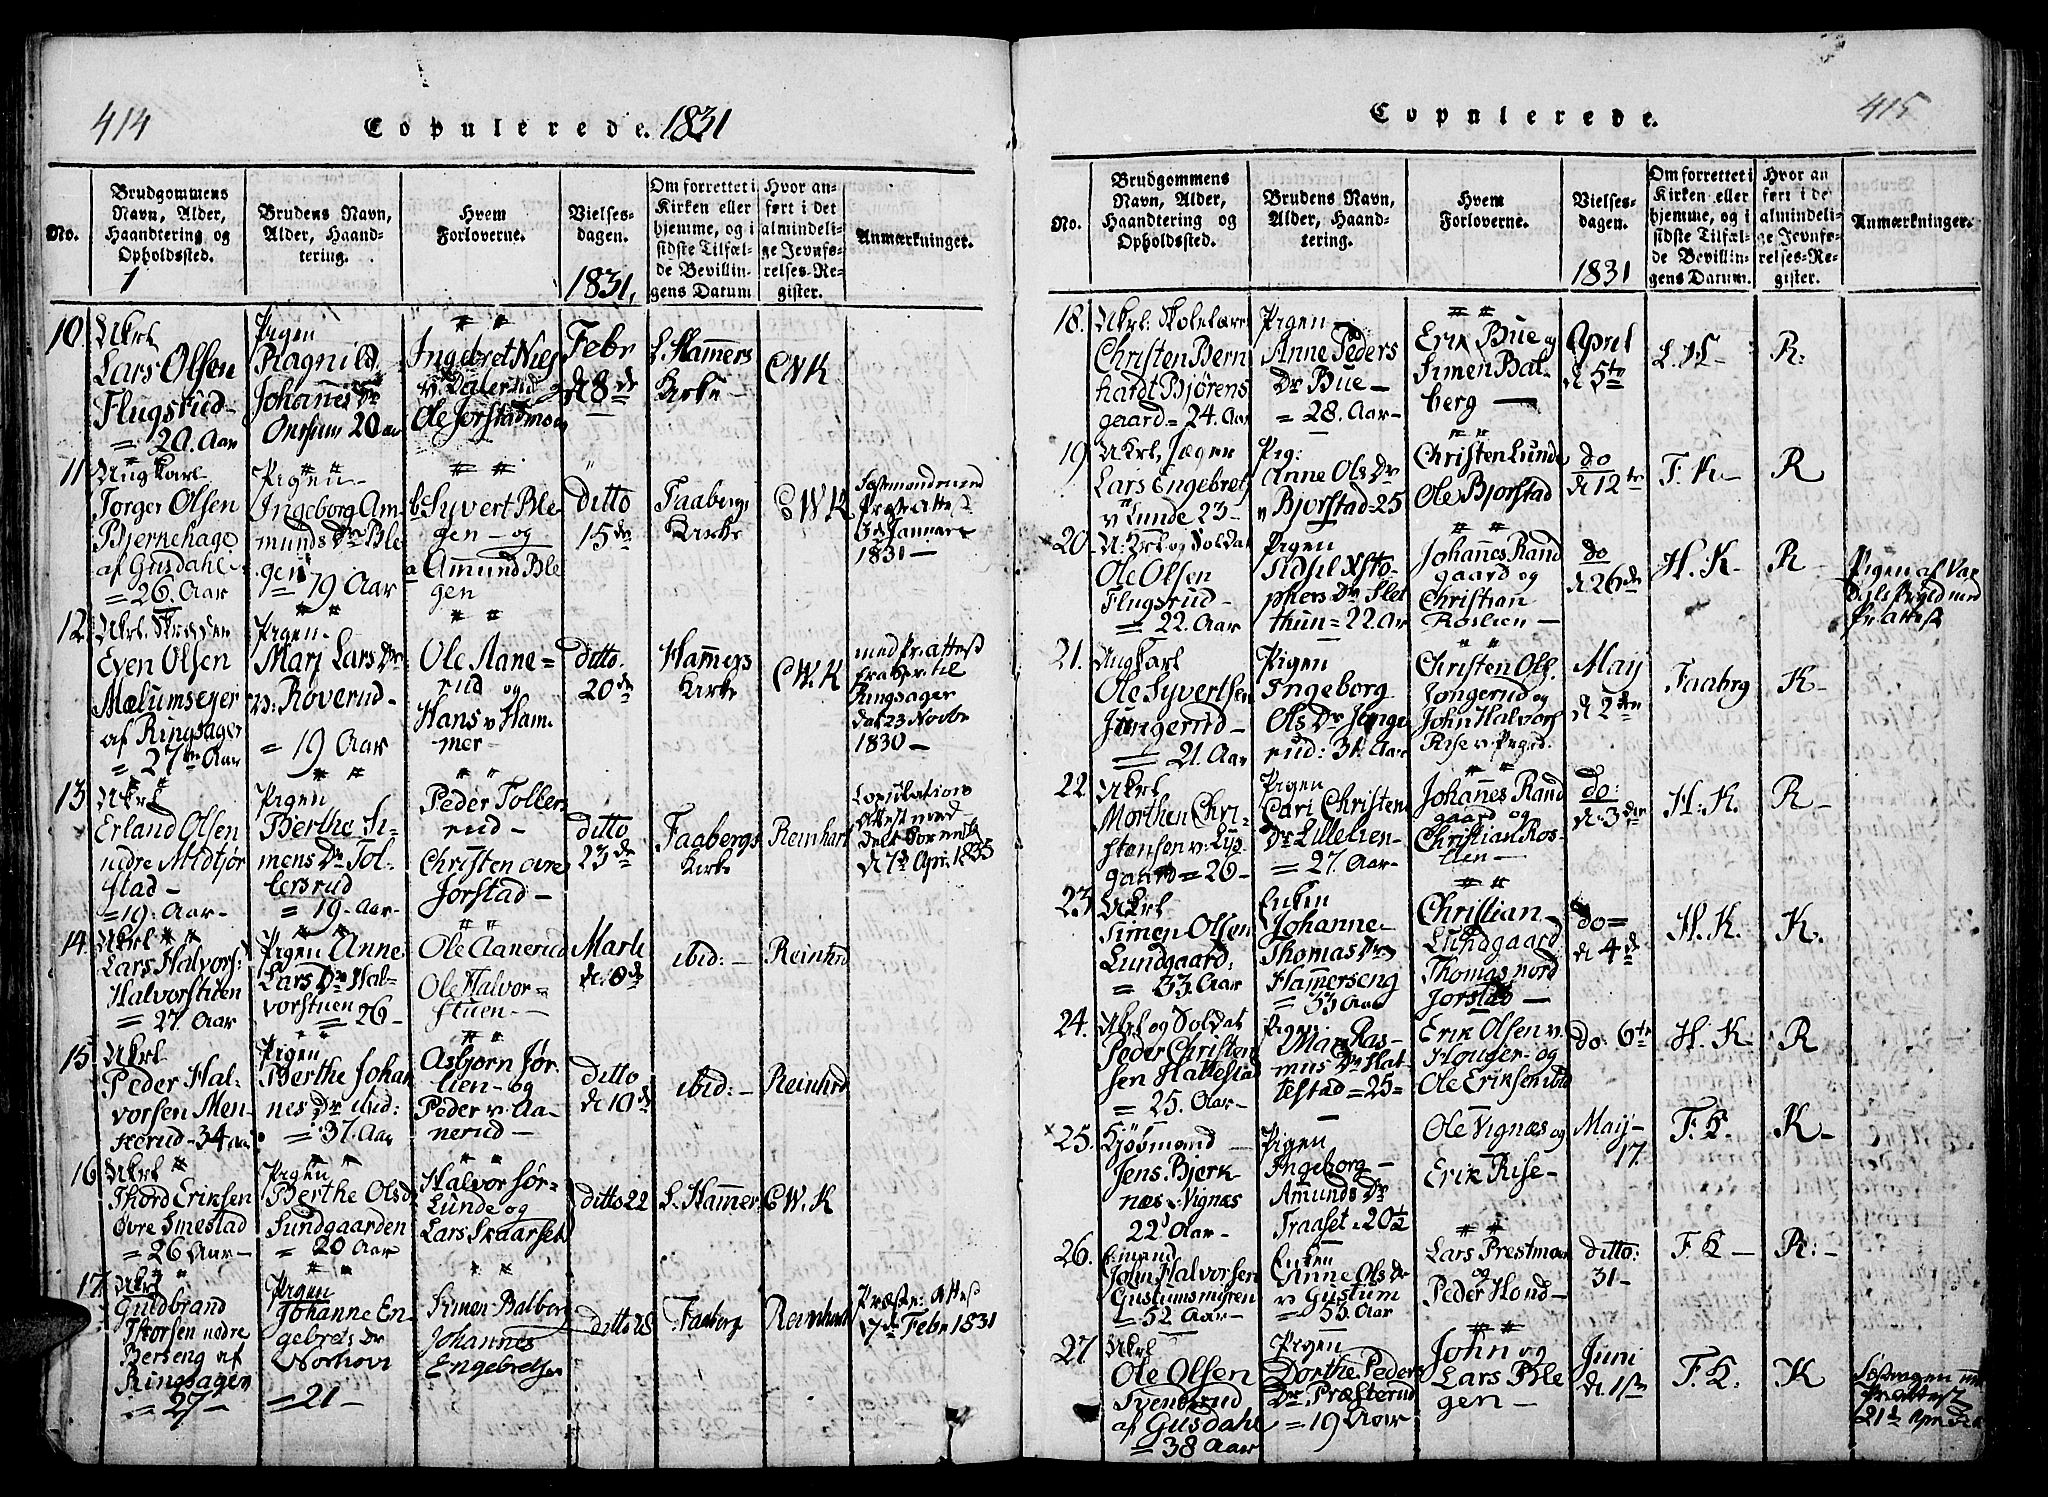 414
Copulerede. 1831
No.
Brudgommens
Navn, Alder,
Haandtering og
Opholdssted.
1
Brudens Navn,
Alder, Haand-
tering.
Hvem
Forloverne.
Vielses-
dagen.
1831,
Om forrettet i
Kirken eller
hjemme, og i
sidste Tilfæl-
de Bevillin-
gens Datum
Hvor an-
ført i det
almindeli-
ge Jevnfø-
relses-Re-
gister.
Anmærkninger.
10.
Ukrl
Lars Olsen
Flugsrud-
= 20. Aar
Pigen
Ragnild
Johannes Dr
20 aar
Ingebret Niels
v. Dalerud og
Ole Jorstadmoen
Febr
d 8de
L. Hammers
Kirke -
CWK
11.
Ungkarl
Torger Olsen
Bjernehage
af Gusdahl-
= 26. Aar
Pigen-
Ingeborg Am-
munds Dr Ble
gen
19 Aar
Syvert Ble-
gen - og
Amund Ble
gen
Ditto
15de
Faabergs
Kirke
CWK
Præste Attest
Januari
1831-
12.
Ukrl. Skrædder
Even Olsen
Mælumseyer
af Ringsager
= 27 Aar
Pigen-
Mari Lars Dr
v: Röverud-
= 19 Aar
Ole Aane=
rud og
Hans v Ham
mer-
ditto.
20de
Hammers
Kirke
CWK
med Pr: Attest
fra
Ringsager
dat 23 Novbr
1830-
13.
Ukrl
Erland Olsen
nedre Midtjør
stad-
=19. Aar-
Pigen
Berthe Si-
mens Dr Tol-
lersrud
= 19. Aar-
Peder Tollers
rud-
Christen øvre
Jørstad-
ditto
23de
Faabergs
Kirke
Reinhart
Copulations
Attest med
delt
d 7de Apri. 1835
14.
Ukrl
Lars Halvors:
Halvorstuen
= 27. Aar
Pigen Anne
Lars Dr Hal-
vorstuen
= 26-
Ole Aanerud
Ole Halvor=
stuen-
Marti
d: 8de
ibid: -
Reinhrd
15
Ukrl
Peder Hal-
vorsen Men-
kerud-34 aa
Pigen
Berthe Johan
nes Dr ibid:
= 37. Aar
Asbjørn Jør-
lien- og
Peder v. Aa-
nerud-
ditto
d 10de
ibid: -
Reinhrd
16
Ukrl
Thord Eriksen
Øvre Smestad
= 26 Aar-
Pigen
Berthe Olsd
Sundgaarden
= 20 Aar
Halvor Sør-
Lunde og
Lars Skaarset
ditto 22
L. Hammer
C.W.K
17.
Ukrl
Guldbrand
Thorsen nedre
Berseng af
Ringsager
= 27-
Pigen
Johanne En
gebrets Dr
=21-
Simen Balberg
Johannes
Engebretsen
ditto 28
Faaberg
Reinhardt
Præste: Attest
7de Febr 1831
415
Copulerede.
No.
Brudgommens
Navn, Alder,
Haandtering og
Opholdssted.
Brudens Navn,
Alder, Haand-
tering.
Hvem
Forloverne.
Vielses-
dagen.
1831
Om forrettet i
Kirken eller
hjemme, og i
sidste Tilfæl-
de Bevillin-
gens Datum.
Hvor an
ført i de
almindeli-
ge Jevnfø-
relses-Re-
gister.
Anmærkninger.
18.
Ukrl: Skolelærer
Christen Bern
hardt Bjørens
gaard= 24. Aar
Pigen-
Anne Peders
Dr Bue-
= 28. Aar-
Erik Bue og
Simen Bal-
berg -
April
d 5te
R:
19.
Ukrl, Jæger
Lars Engebrets
v Lunde 23-
Pig:
Anne Ols Dr
v Bjorstad=25
Christen Lunde
Ole Bjorstad
do
d 12te
F. K-
R
20.
U: Krl og Soldat
Ole Olsen
Flugsrud-
= 22. Aar
Pigen
Sidsil Xsto-
phers Dr Slet
thun= 22 Aar
Johannes Rand
gaard og
Christian
Roslien-
do
d 26de
H. K-
R-
Pigen af Var
dale Sogld med
Pr: Attest
21.
Ungkarl
Ole Syvertsen
Jungerud-
= 21. Aar
Pigen
Ingeborg
Ols Dr Junge
rud: 31. Aar
Christen Ols.
Jongerud og
John Halvors
Rise v. Øygd.
May
d 2den
Faabrg
K-
22
Ukrl
Morthen Chri-
stensen v: Lys
gaard = 26-
Pigen
Cari Christens
Dr Lillelien-
= 27. Aar
Johannes Rand
gaard og
Christian Ros-
lien-
do:
d: 3die
H: K.
R-
23.
Ukrl
Simen Olsen
Lundgaard.
= 33. Aar
Enken
Johanne-
Thomas Dr
Hammerseng
= 53 Aar
Christian-
Lundgaard
Thomas nord
Jorstad-
do=
d 4de
H. K.
K.
24.
Ukrl og Soldat
Peder Christen
sen Hattestad
= 25. Aar-
Pigen:
Mari Ras-
mus Dr Hat-
testad=25=
Erik Olsen v.
Houger- og
Ole Eriksen ibid
do: 6te
H. K-
R
25.
Kjøbmand
Jens Bjerk
næs v: Vignæs
22 Aar-
Pigen
Ingeborg-
Amunds Dr
Traaset = 20½
Ole Vignæs og
Erik Rise-
May-
17.
F. K.
K-
26.
Emand
John Halvorsen
Gustumsmyren
= 52 Aar-
Enken
Anne Ols Dr
v Gustum
= 53. Aar
Lars Prestmoen
og
Peder Hond-
ditto:
31-
F. K-
R:-
27
Ukrl
Ole Olsen
Svenerud
af Gusdahl
= 38 Aar
Pigen
Dorthe Peders
Dr Præsterud
= 19 Aar
John og
Lars Ble
gen-
Juni
d. 1ste
F. K.
K
Pr: Attest